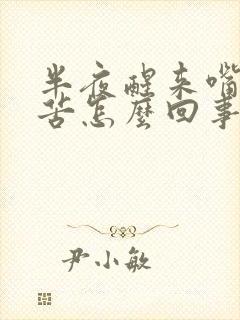 半夜醒来嘴
苦怎麼回事
尹小敏